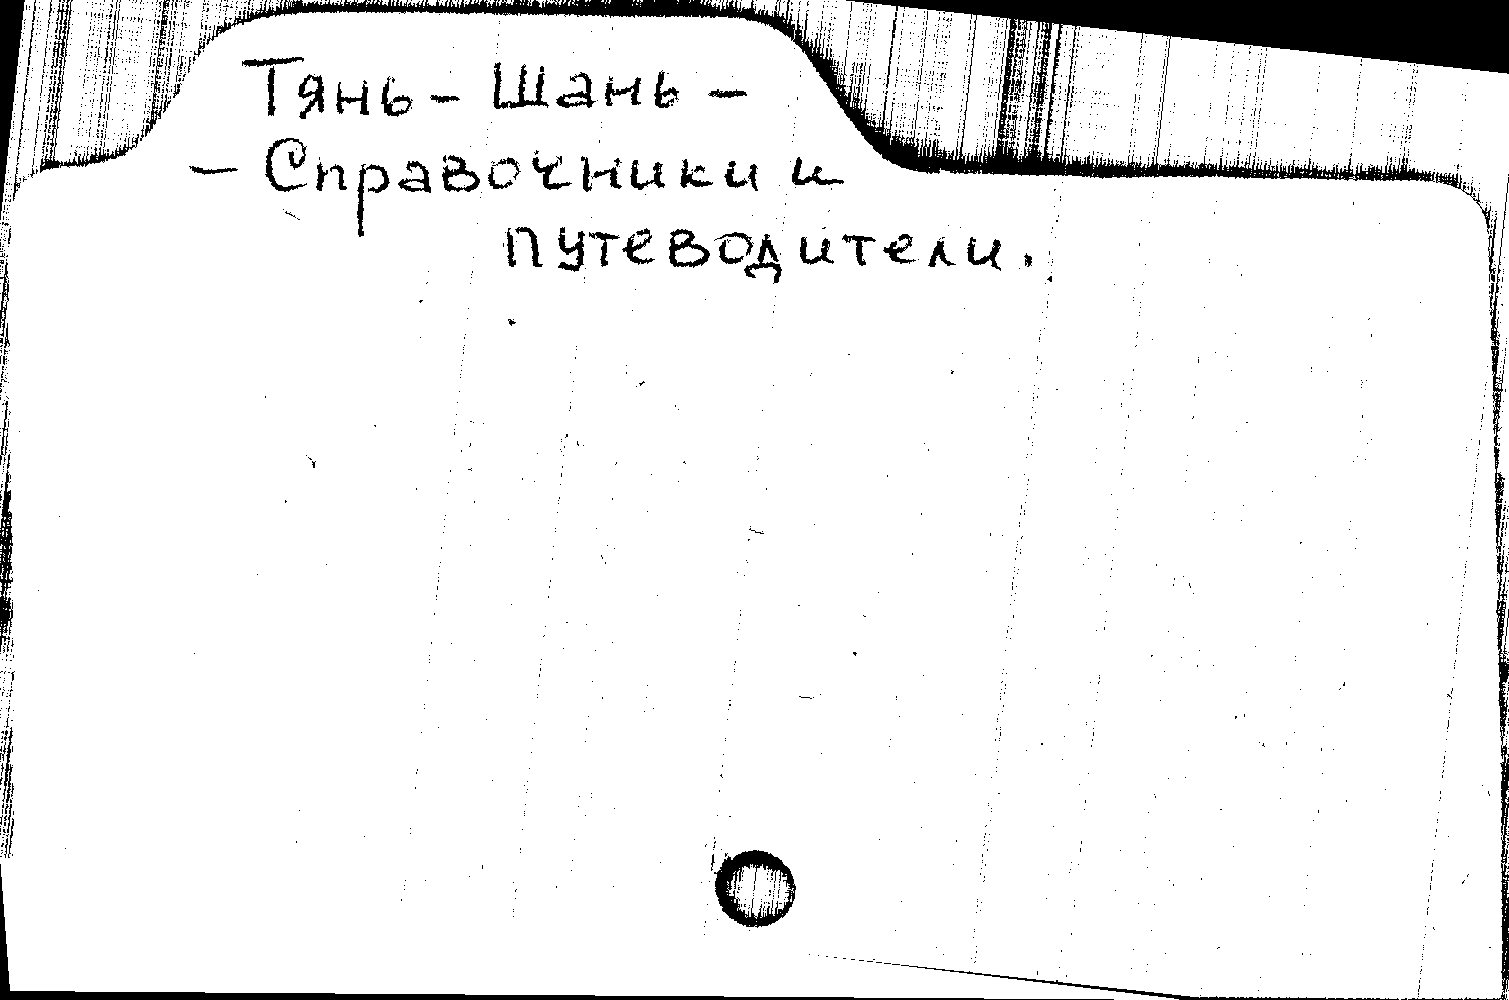 Тянь-Шань -
- Справочники и
путеводители.